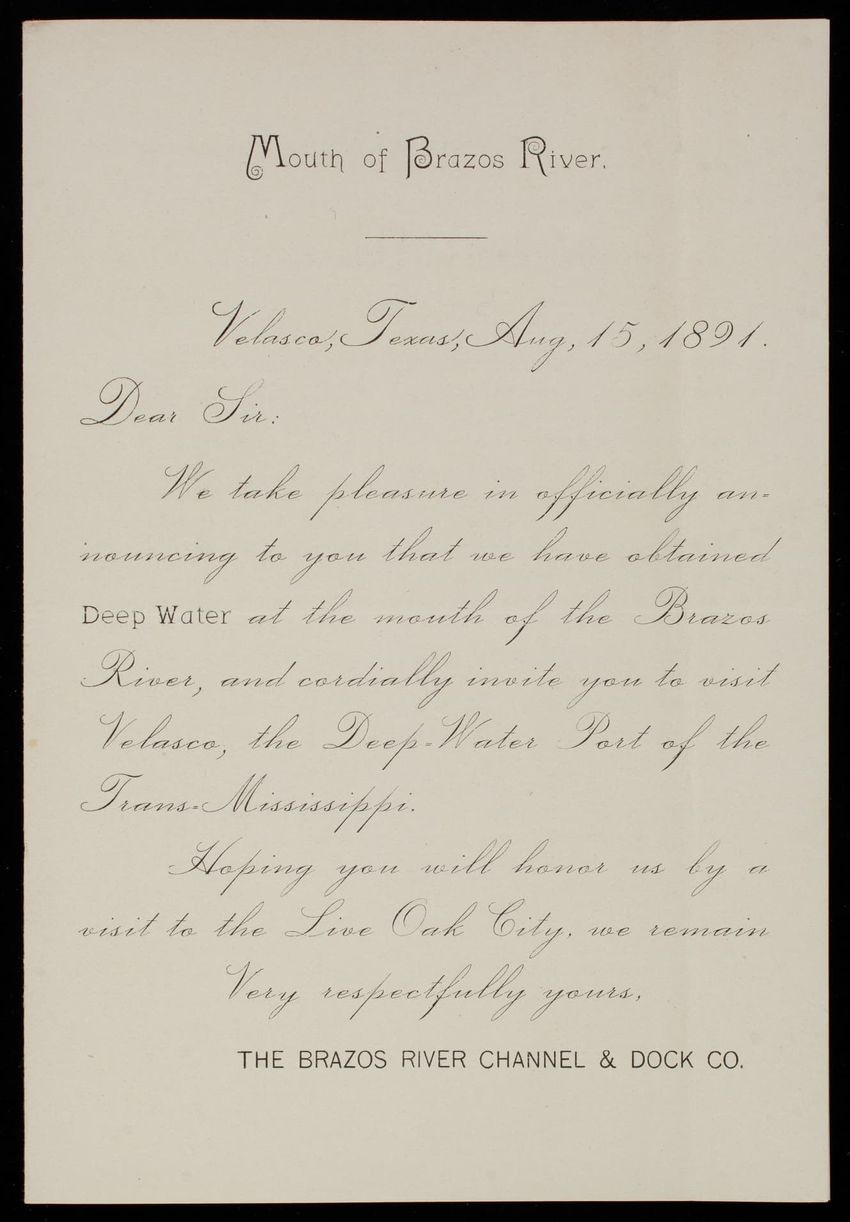 Mouth of Brazos River.
Velasco, Texas, Aug, 15, 1891.
Dear Sir:
We take pleasure in officially an-
nouncing to you that we have obtained
Deep Water at the mouth of the Brazos
River, and cordially invite you to visit
Velasco, the Deep-Water Port of the
Trans-Mississippi.
Hoping you will honor us by a
visit to the Live Oak City, we remain
Very respectfully yours,
THE BRAZOS RIVER CHANNEL & DOCK CO.